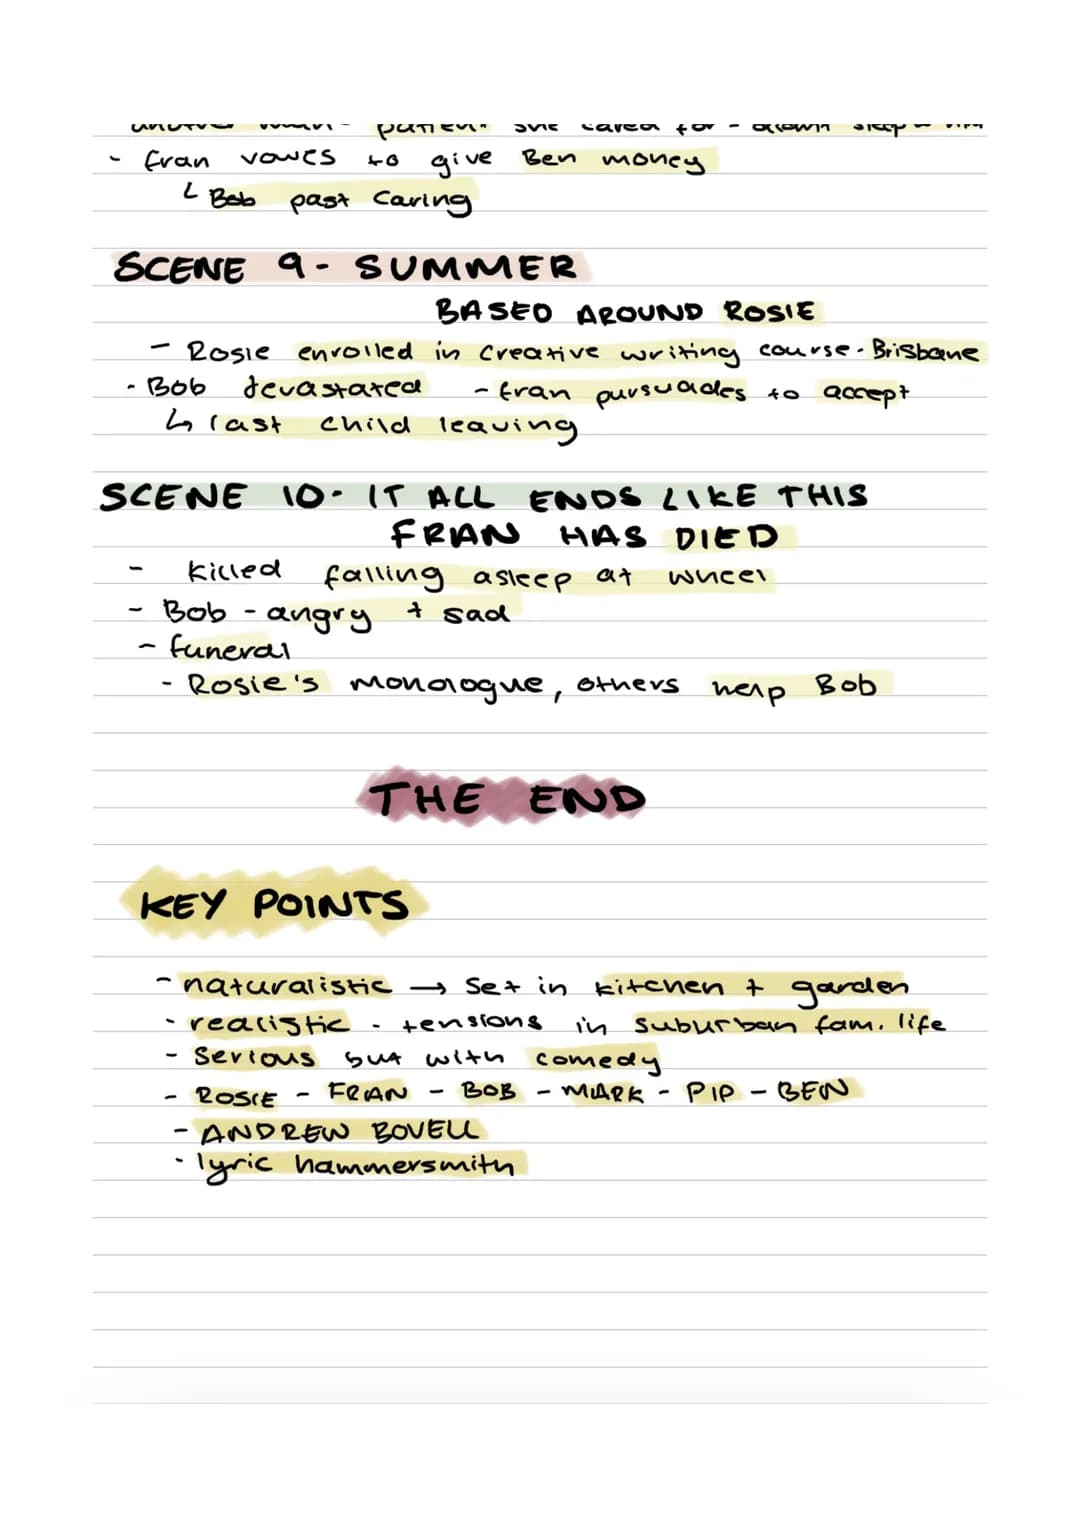 patient she cared for -
- fran vowes to give Ben money
↳ Bob past caring
SCENE 9 - SUMMER
BASED AROUND ROSIE
- Rosie enrolled in creative writing course - Brisbane
- Bob devastated - fran pursuades to accept
↳ last child leaving
SCENE 10 - IT ALL ENDS LIKE THIS
FRAN HAS DIED
- killed falling asleep at wheel
- Bob - angry + sad
- funeral
- Rosie's monologue, others help Bob
THE END
KEY POINTS
- naturalistic → set in kitchen + garden
- realistic - tensions in suburban fam. life
- serious but with comedy
- ROSIE - FRAN - BOB - MARK - PIP - BEN
- ANDREW BOVELL
- lyric hammersmith